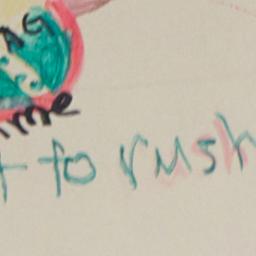 AG
me
to rush